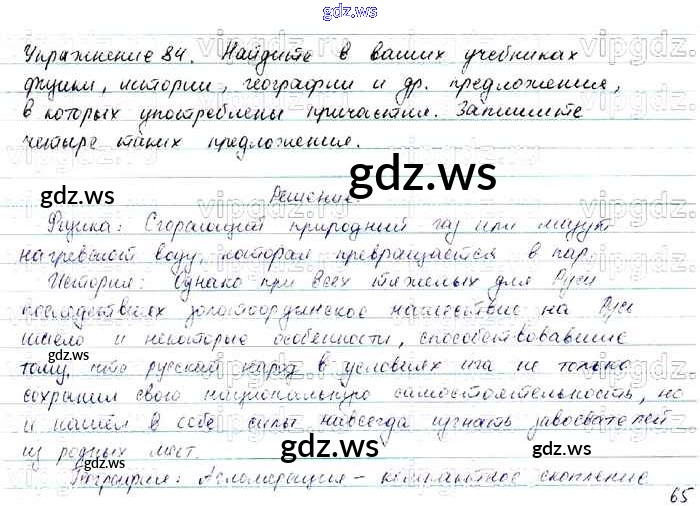 gdz.ws
Упражнение 84. Найдите в ваших учебниках
физики, истории, географии и др. предложения,
в которых употреблены причастия. Запишите
четыре таких предложения.
gdz.ws
gdz.ws
Решение.
Физика: Сгорающий природный газ или мазут
нагревают воду, которая превращается в пар.
История: Однако при всех тяжелых для Руси
последствиях золотоордынское нашествие на Русь
имело и некоторые особенности, способствовавшие
тому, что русский народ в условиях ига не только
gdz.ws
сохранил свою национальную самостоятельность, но
и нашел в себе силы навсегда изгнать завоевателей
из родных мест.
gdz.ws
gdz.ws
География: Агломерация – компактное скопление
65